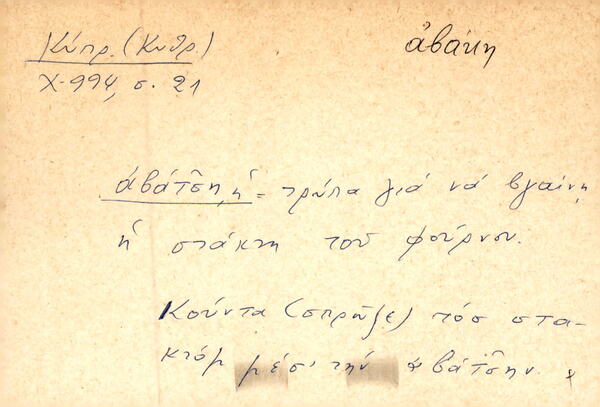 Κύπρ. (Κυθρ.)
ἀβάκη
Χ-994, σ. 21
ἀβάτσ̆η, ἡ = τρύπα γιά νά βγαίνη
ἡ στάκτη τοῦ φούρνου.
Κούντα (σπρῶξε) τόσ στα-
κτόμ μέσ' τήν ἀβάτσ̆ην.